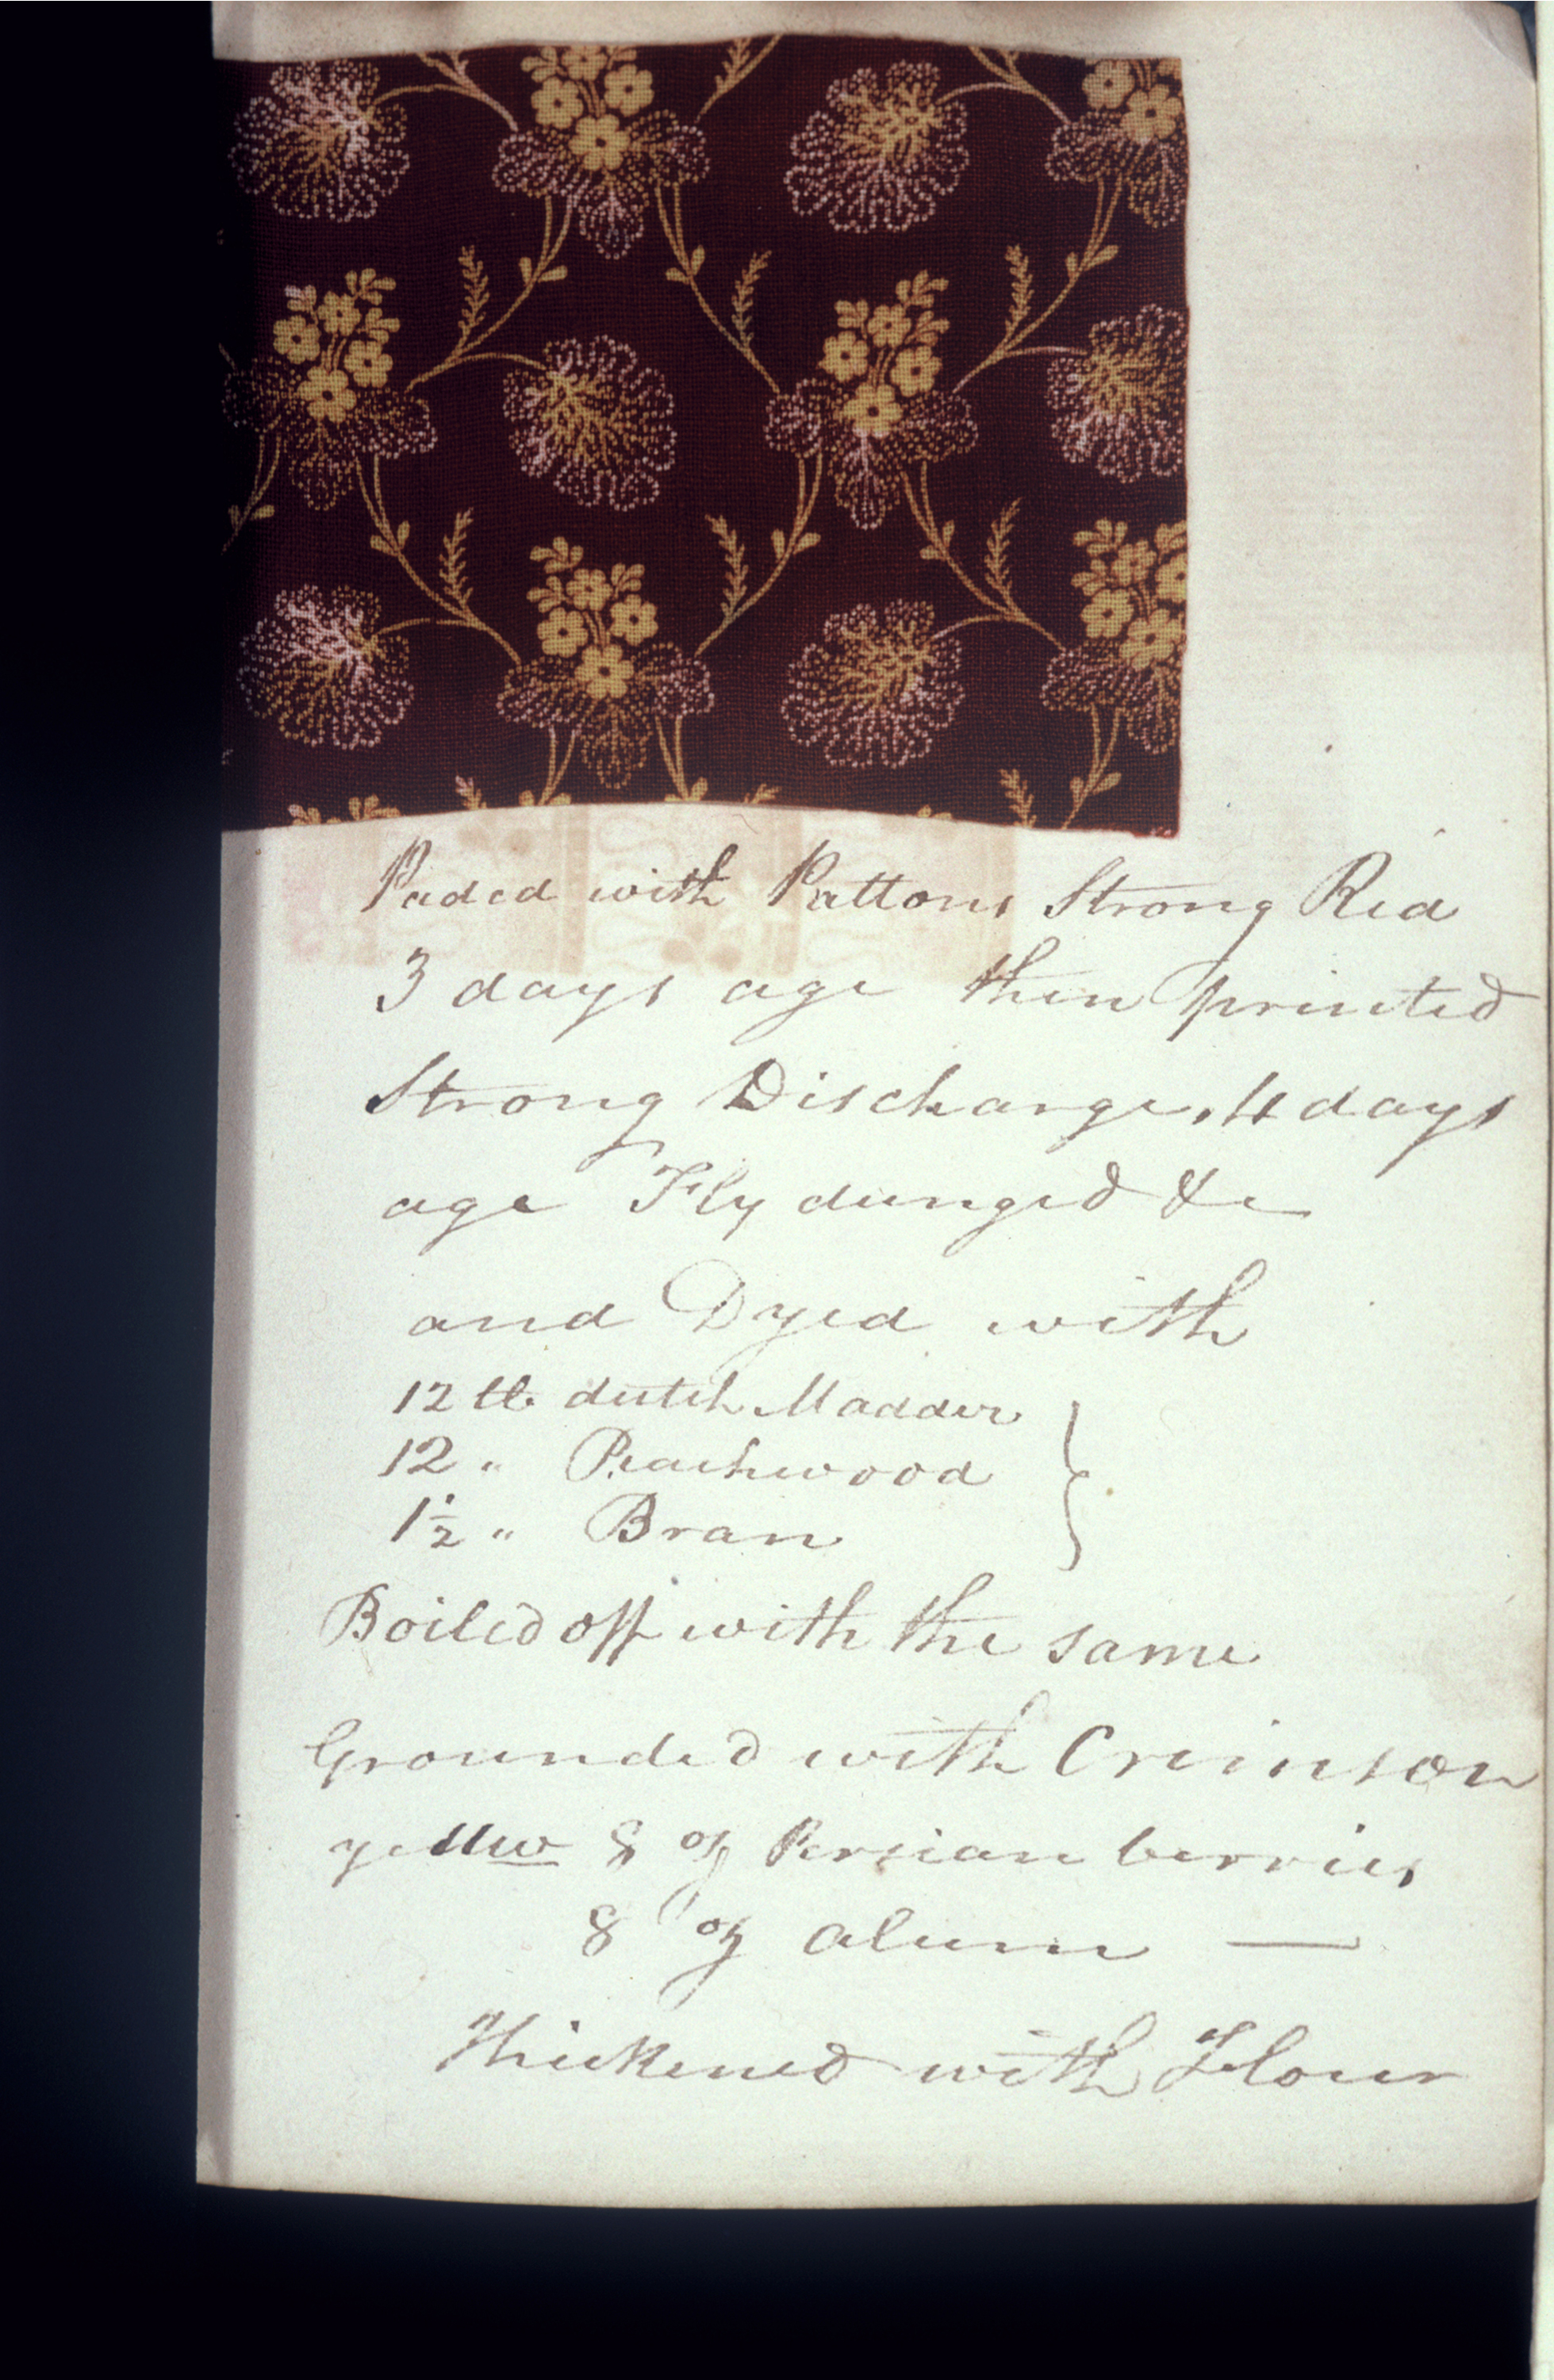 Paded with Pattons Strong Red
3 days age then printed
Strong Discharge, 4 days
age Fly dunged &c
and Dyed with
12 lb dutch Madder
12 " Peachwood
1½ " Bran
Boiled off with the same
Grounded with Crimson
yellw 8 oz Persian berries
8 oz alum —
Thickened with Flour